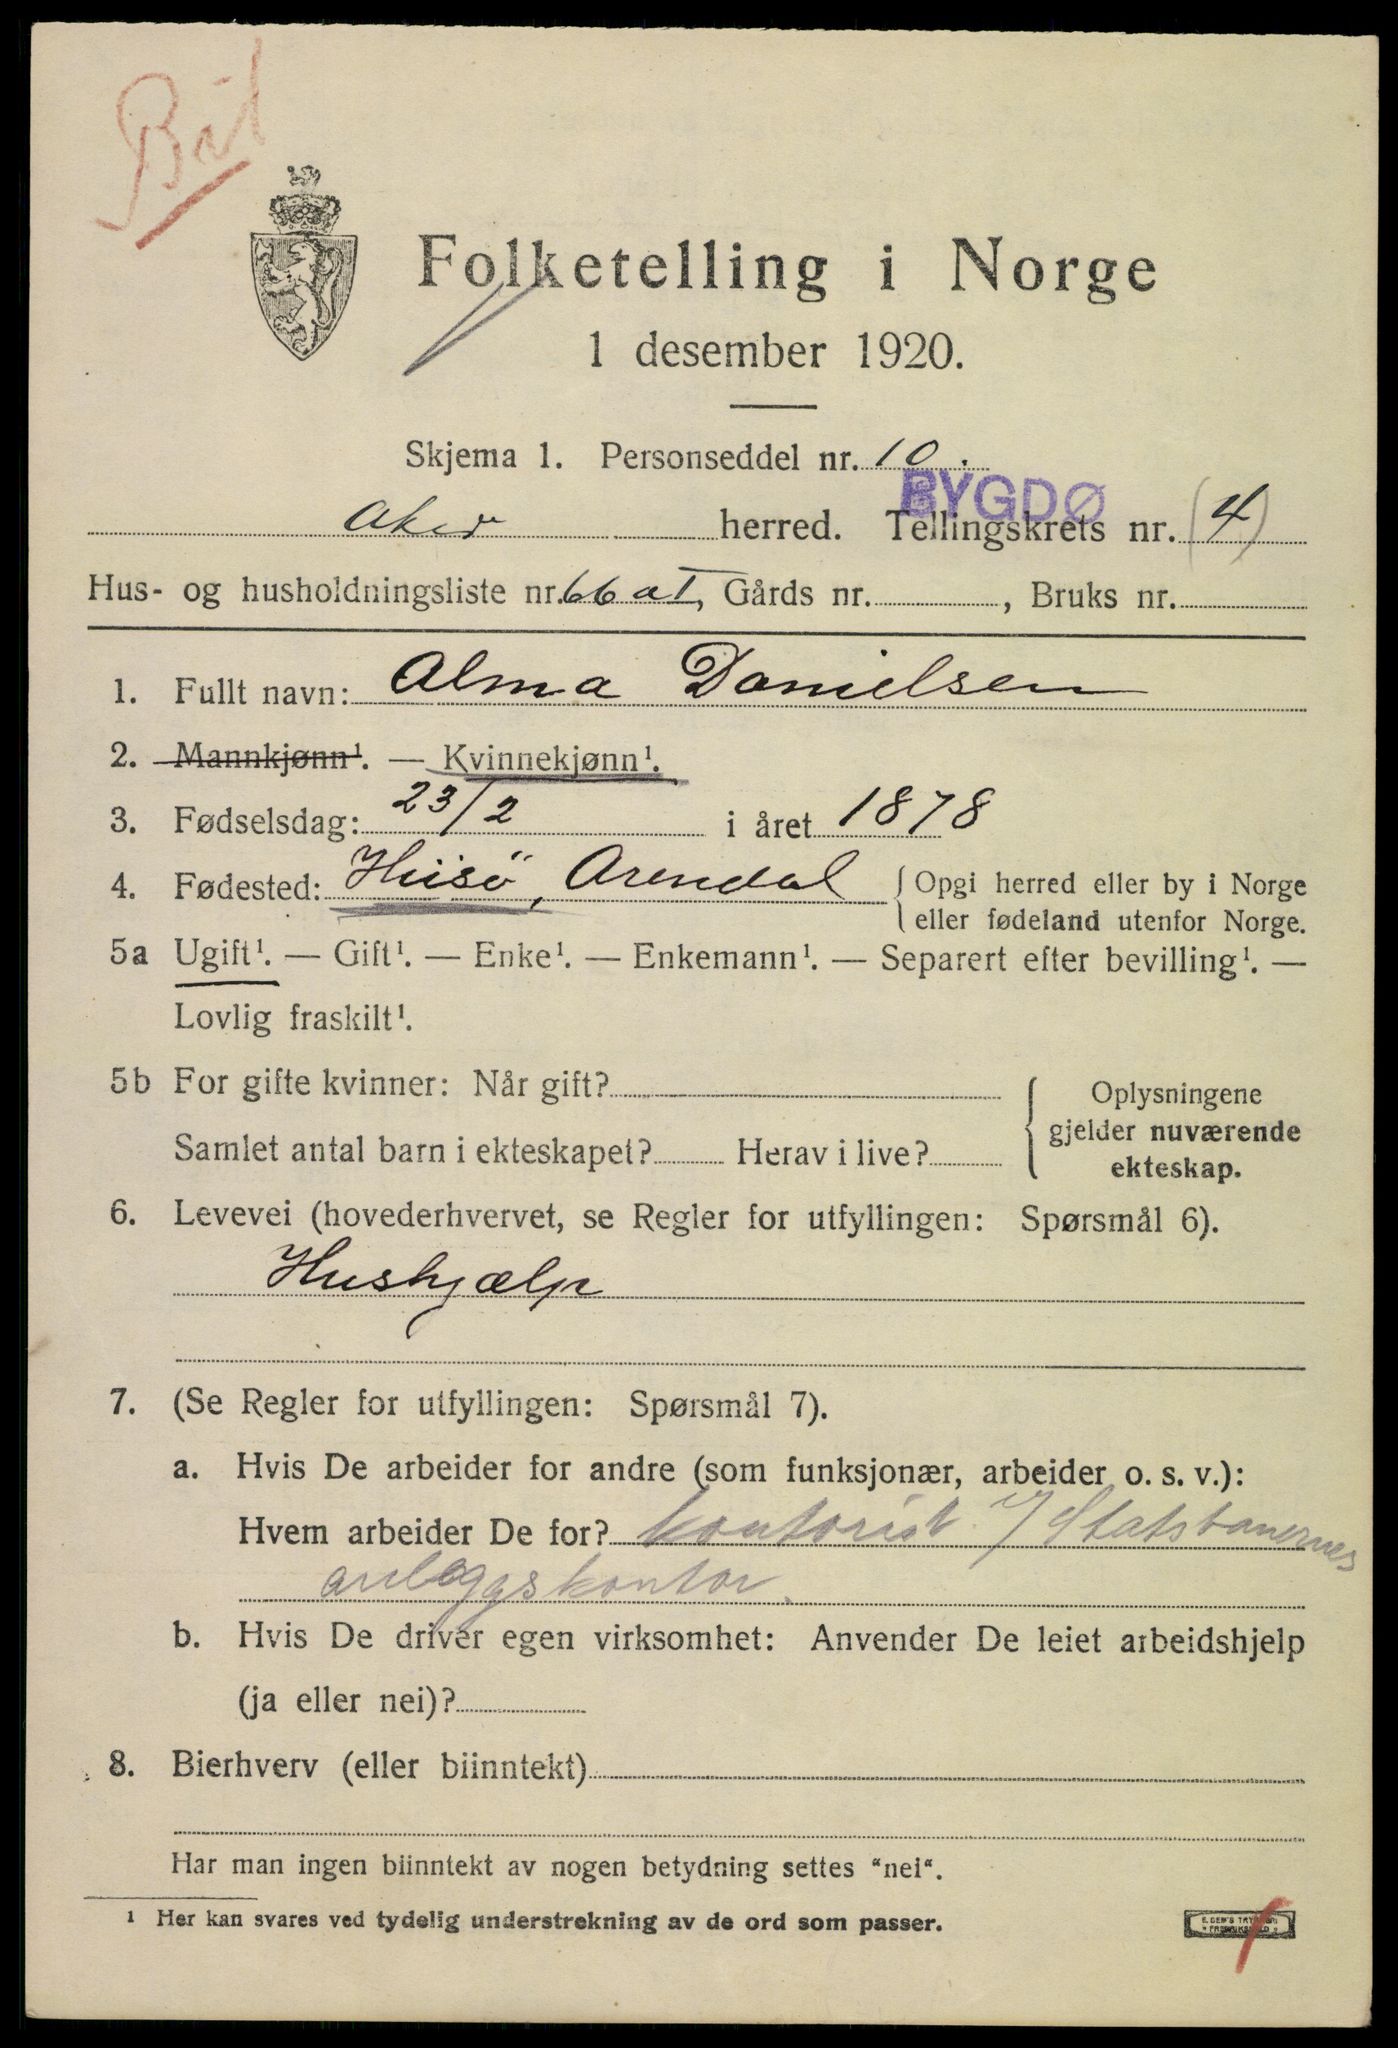 Bil
Folketelling i Norge
1 desember 1920.
Skjema 1. Personseddel nr. 10.
BYGDØ
Aker herred. Tellingskrets nr. (4)
Hus- og husholdningsliste nr. 66 a I, Gårds nr. , Bruks nr.
1. Fullt navn: Alma Danielsen
2. Mannkjønn¹. — Kvinnekjønn¹.
3. Fødselsdag: 23/2 i året 1878
4. Fødested: Hisö, Arendal { Opgi herred eller by i Norge
eller fødeland utenfor Norge.
5a Ugift¹. — Gift¹. — Enke¹. — Enkemann¹. — Separert efter bevilling¹. —
Lovlig fraskilt¹.
5b For gifte kvinner: Når gift?
Samlet antal barn i ekteskapet? Herav i live?
Oplysningene
gjelder nuværende
ekteskap.
6. Levevei (hovederhvervet, se Regler for utfyllingen: Spørsmål 6).
Hushjælp
7. (Se Regler for utfyllingen: Spørsmål 7).
a. Hvis De arbeider for andre (som funksjonær, arbeider o. s. v.):
Hvem arbeider De for? kontorist i/ Statsbanernes
anlæggskontor.
b. Hvis De driver egen virksomhet: Anvender De leiet arbeidshjelp
(ja eller nei)?
8. Bierhverv (eller biinntekt)
Har man ingen biinntekt av nogen betydning settes "nei".
¹ Her kan svares ved tydelig understrekning av de ord som passer.